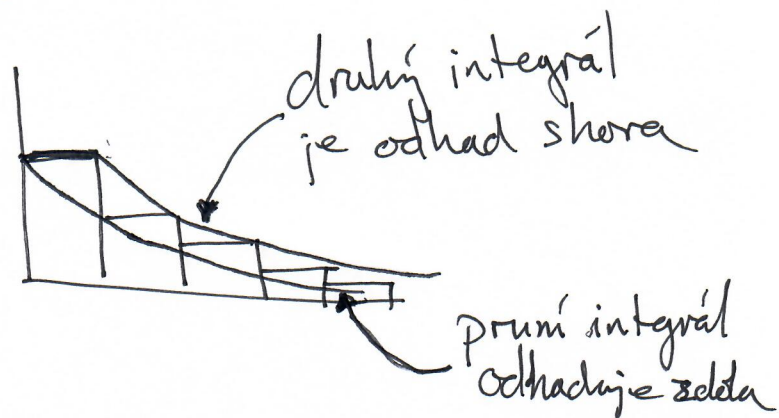 druhý integrál
je odhad shora
první integrál
odhaduje zdola